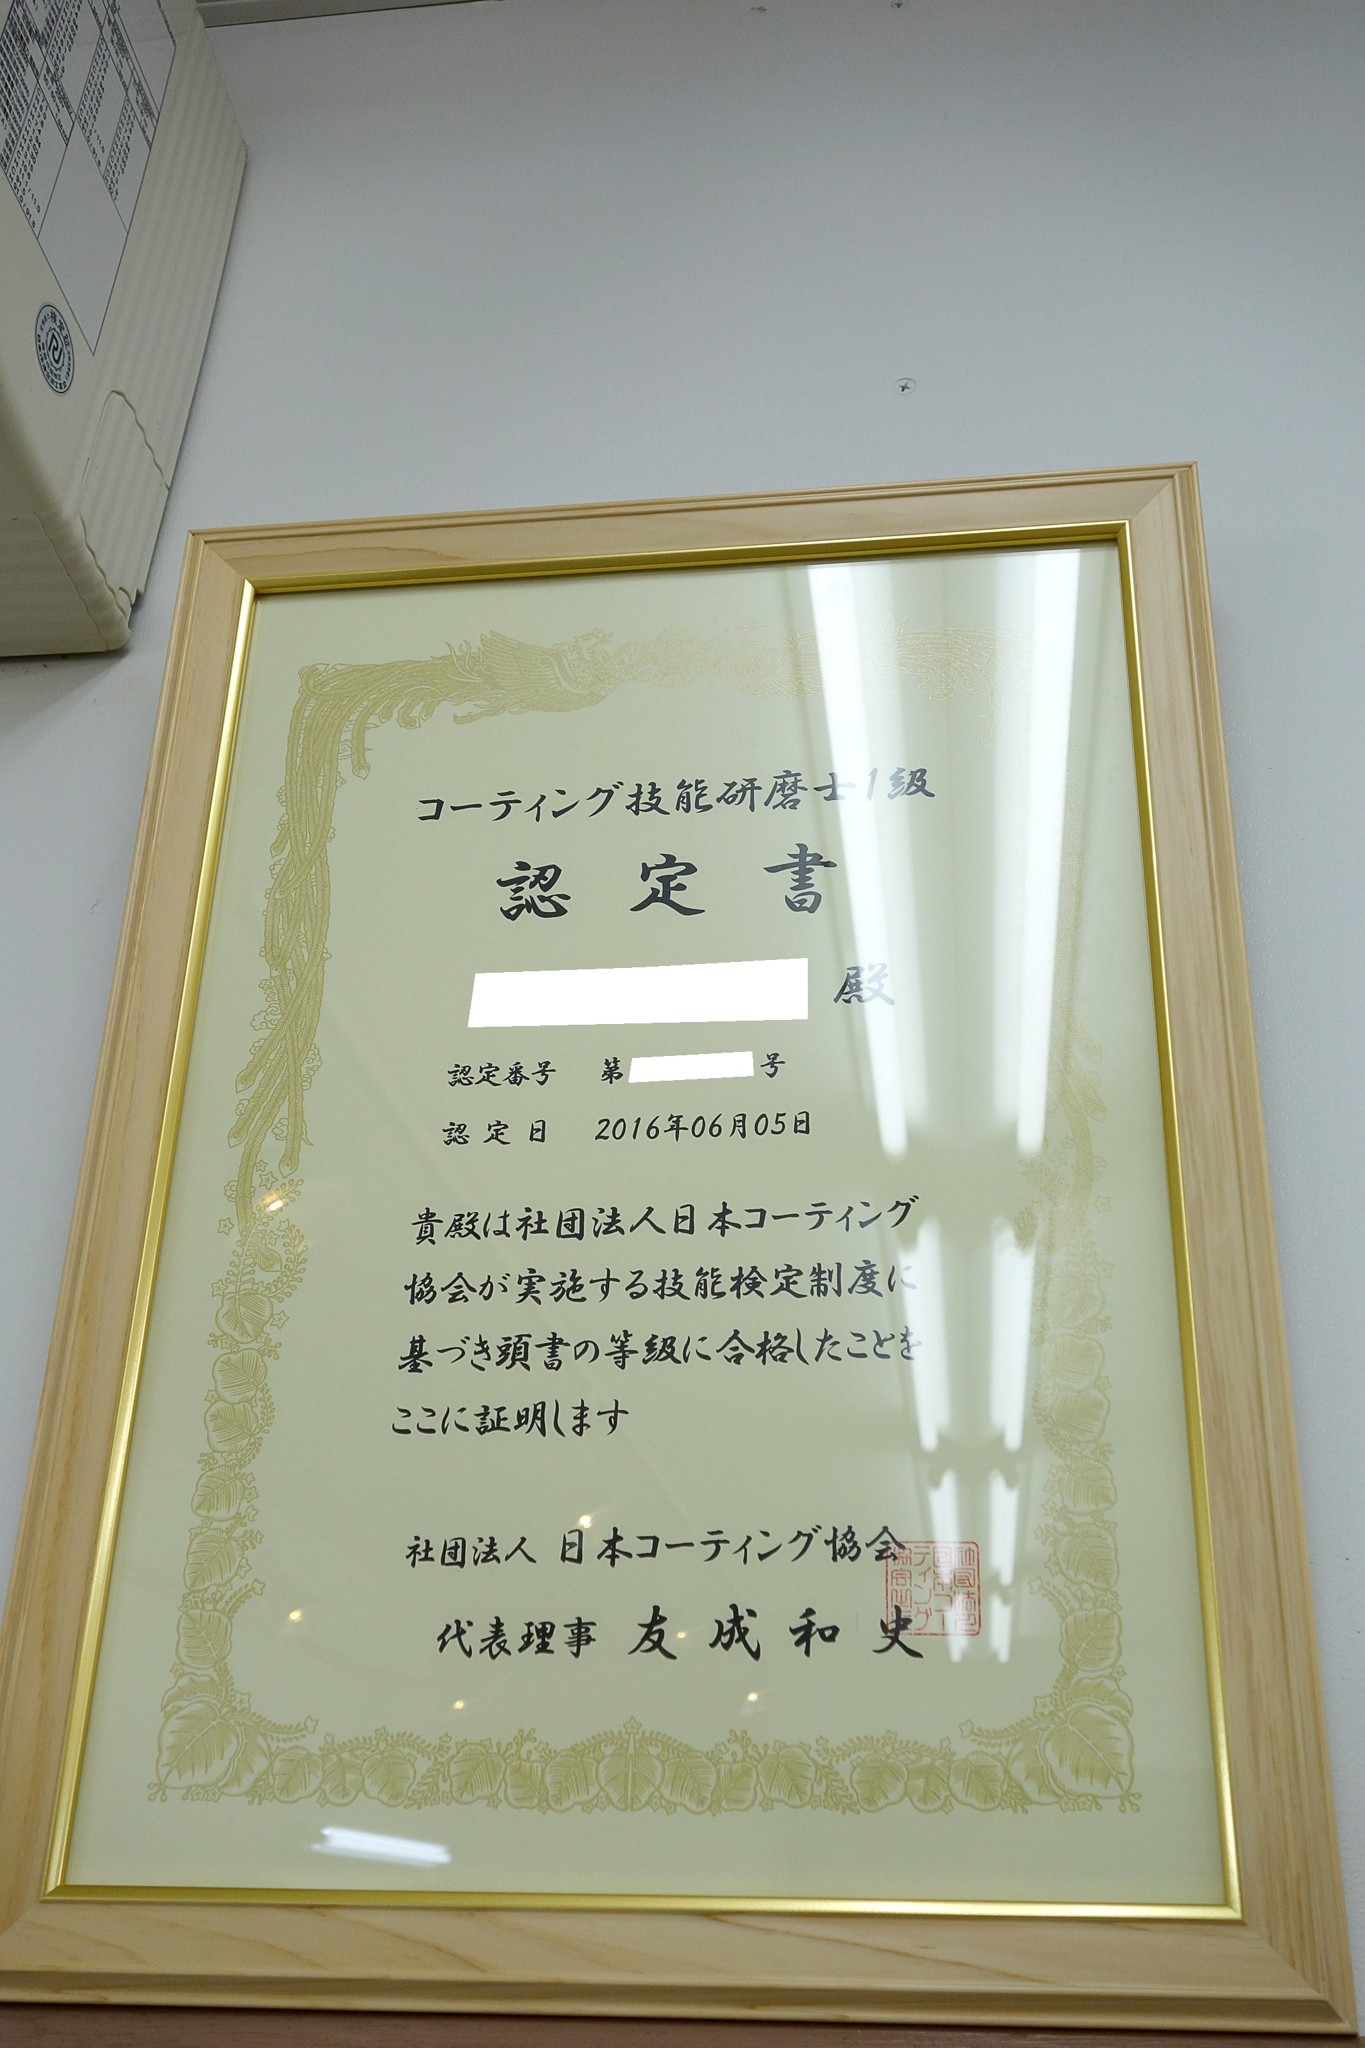 コーティング技能研磨士1級
認定書
殿
認定番号 第 号
認定日 2016年06月05日
貴殿は社団法人日本コーティング
協会が実施する技能検定制度に
基づき頭書の等級に合格したことを
ここに証明します
社団法人 日本コーティング協会
代表理事 友成和史